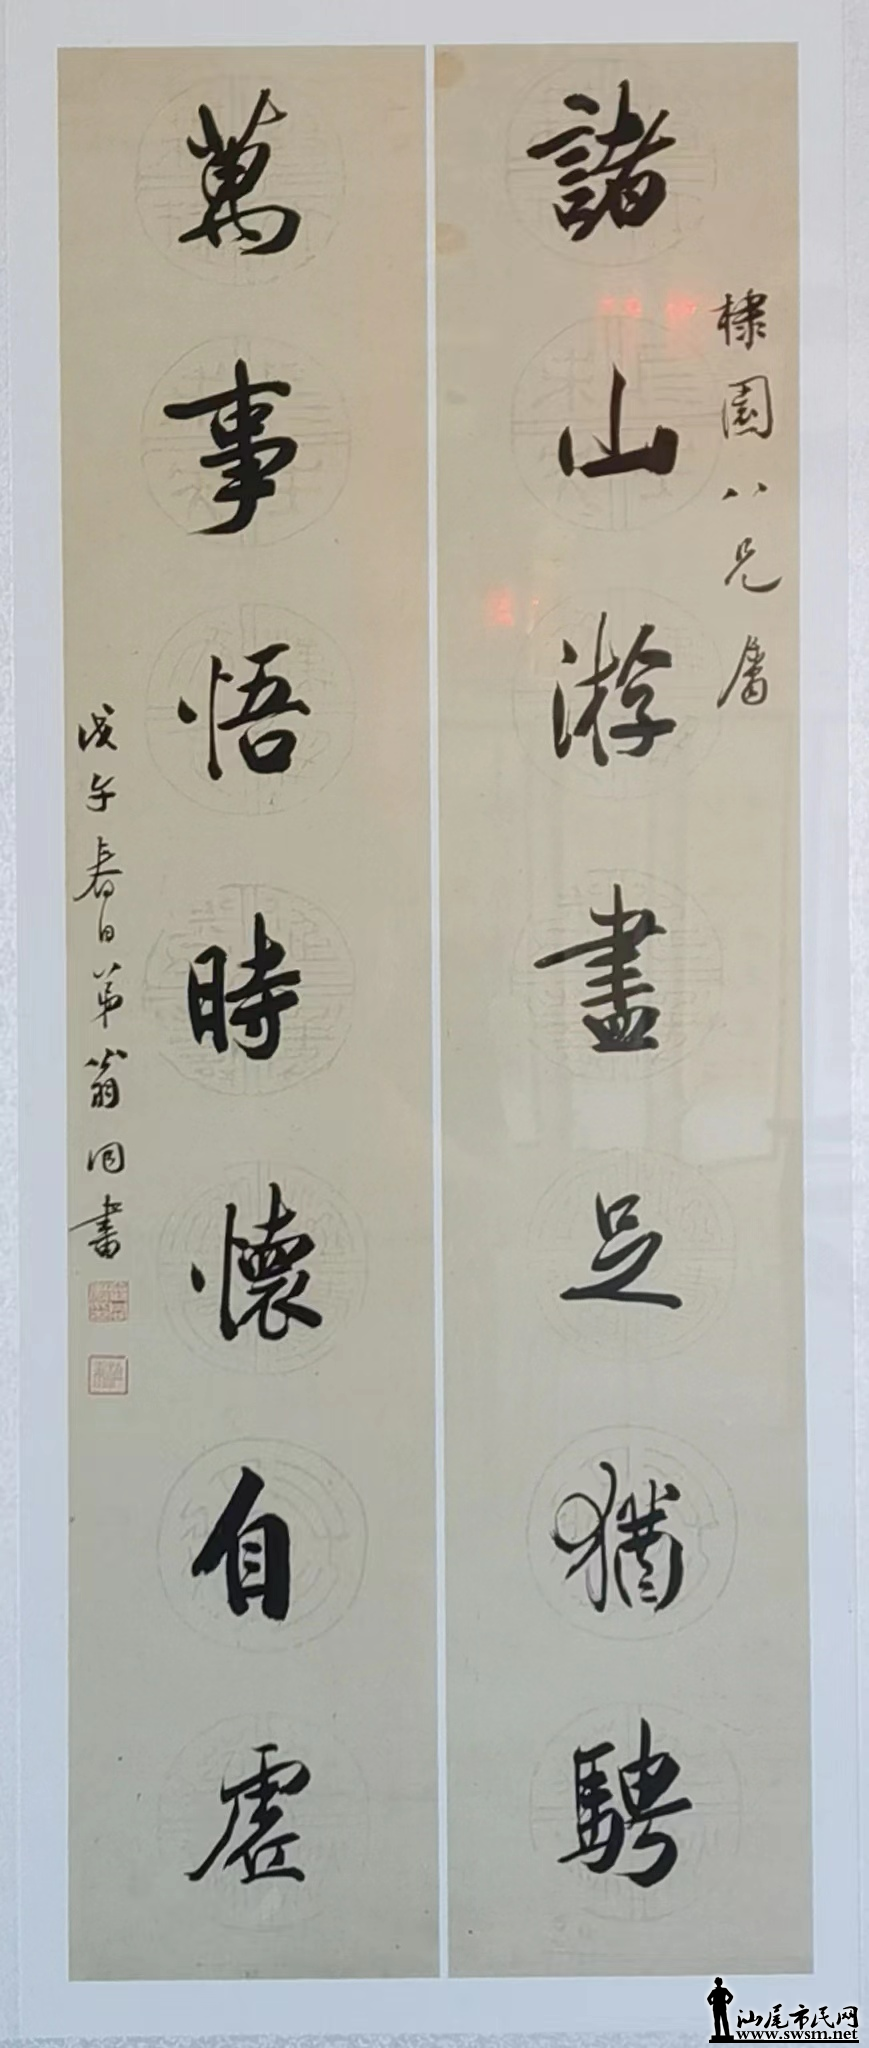 諸山游盡足猶騁
棣園八兄屬
萬事悟時懷自虛
戊午春日弟翁同書
汕尾市民网
www.swsm.net